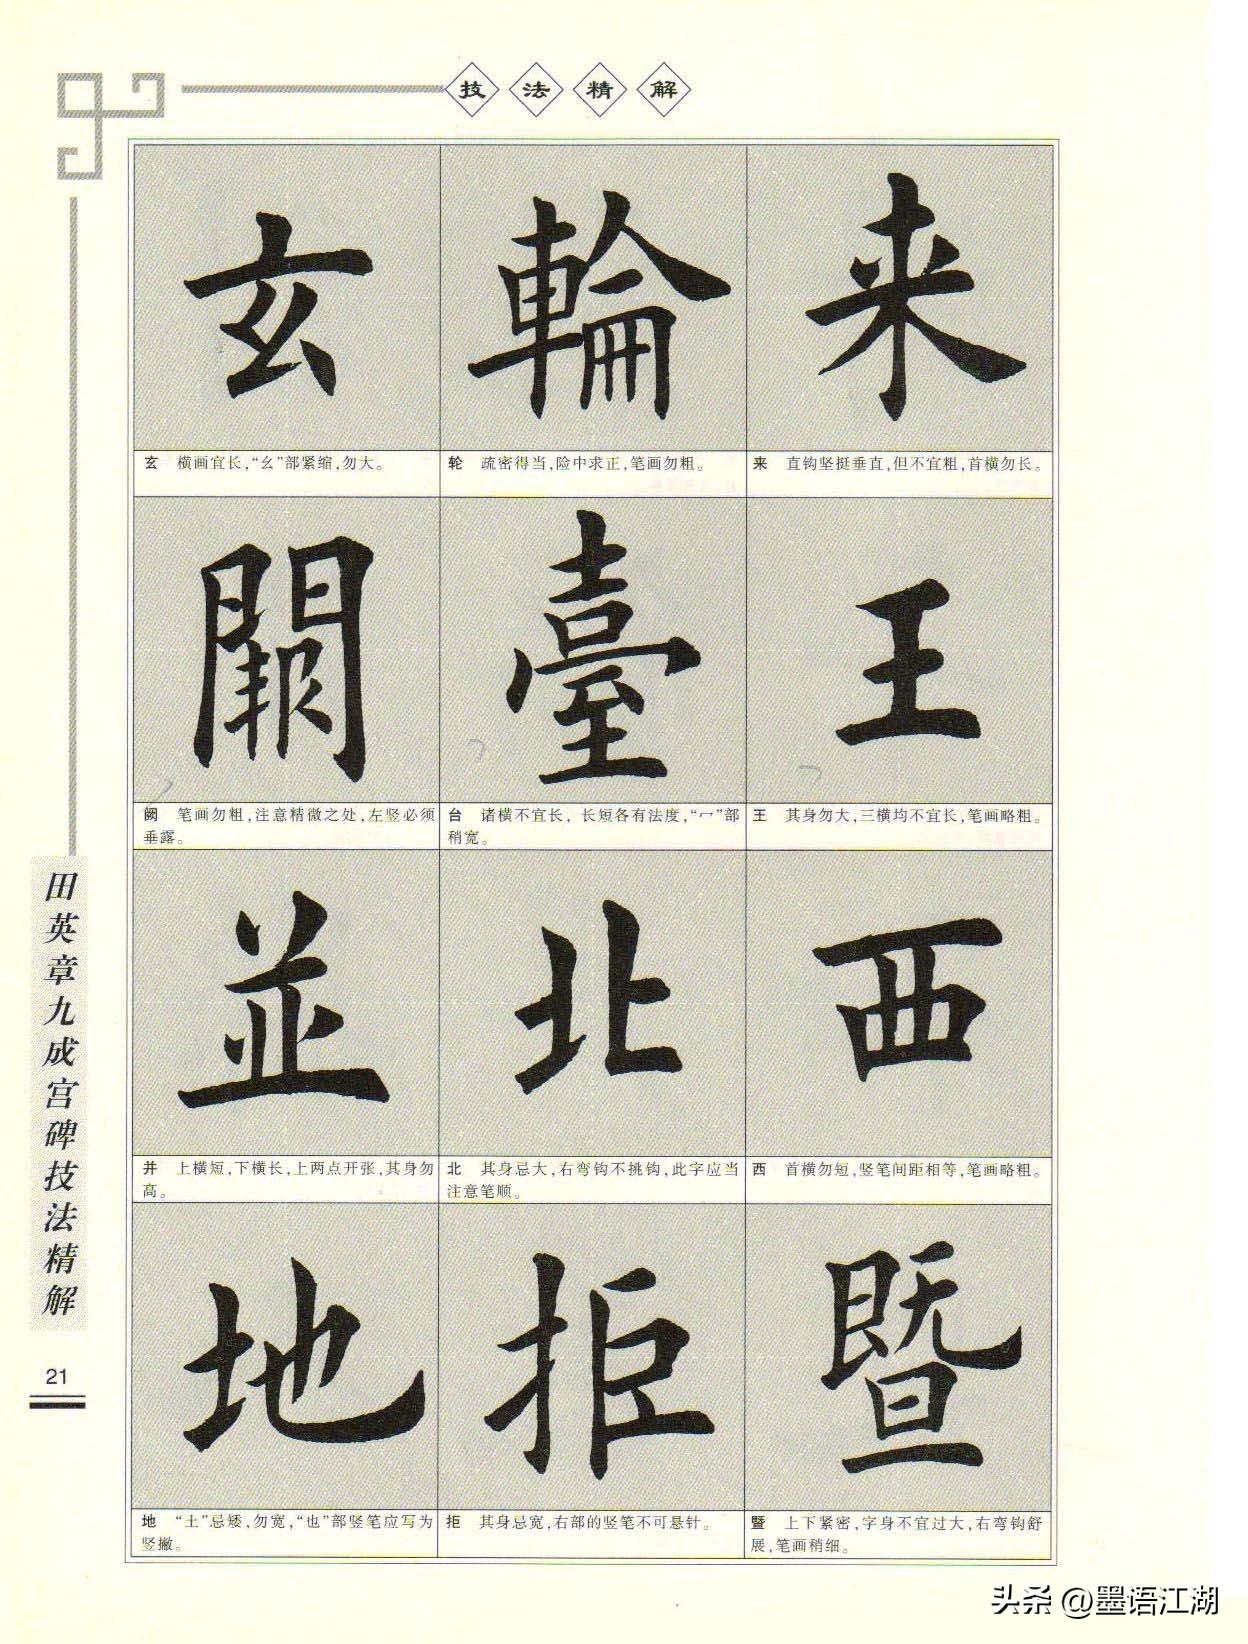 技法精解
玄 輪 来
玄 横画宜长,“幺”部紧缩,勿大。
轮 疏密得当,险中求正,笔画勿粗。
来 直钩坚挺垂直,但不宜粗,首横勿长。
闕 臺 王
阙 笔画勿粗,注意精微之处,左竖必须
垂露。
台 诸横不宜长,长短各有法度,“冖”部
稍宽。
王 其身勿大,三横均不宜长,笔画略粗。
並 北 西
并 上横短,下横长,上两点开张,其身勿
高。
北 其身忌大,右弯钩不挑钩,此字应当
注意笔顺。
西 首横勿短,竖笔间距相等,笔画略粗。
地 拒 暨
地 “土”忌矮,勿宽,“也”部竖笔应写为
竖撇。
拒 其身忌宽,右部的竖笔不可悬针。
暨 上下紧密,字身不宜过大,右弯钩舒
展,笔画稍细。
田英章九成宫碑技法精解
21
头条 @墨语江湖